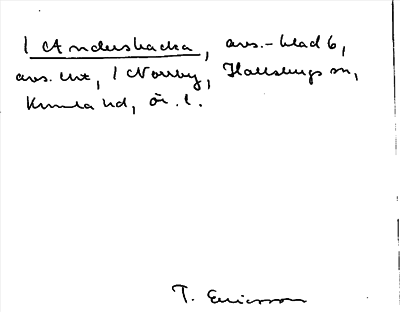 1 Andersbacka, avs.-blad 6,
avs. utx, 1 Norrby, Hallsbergs sn,
Kumla hd, ör. l.
T. Ericsson